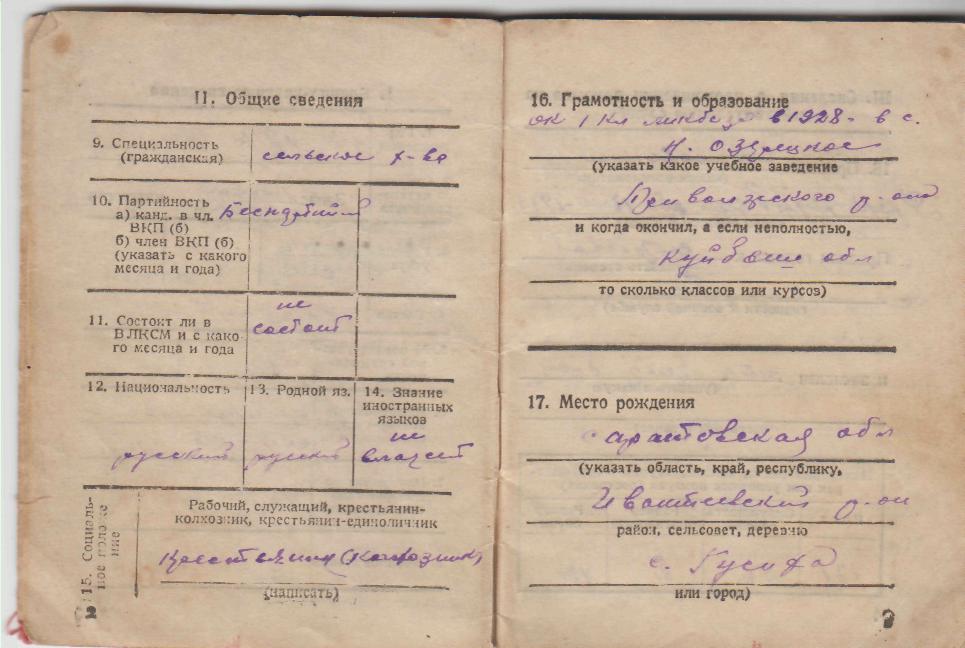 II. Общие сведения
9. Специальность
(гражданская)
сельское х-во
10. Партийность
а) канд. в чл.
ВКП (б)
б) член ВКП (б)
(указать с какого
месяца и года)
Беспартийный
11. Состоит ли в
ВЛКСМ и с како-
го месяца и года
не
состоит
12. Национальность
русский
13. Родной яз.
русский
14. Знание
иностранных
языков
не
владеет
15. Социаль-
ное положе-
ние
Рабочий, служащий, крестьянин-
колхозник, крестьянин-единоличник
Крестьянин (колхозник)
(написать)
2
16. Грамотность и образование
ок 1 кл ликбеза в 1928 в с.
озерецкое
(указать какое учебное заведение
Приволжского р-она
и когда окончил, а если неполностью,
Куйбыш обл
то сколько классов или курсов)
17. Место рождения
Саратовская обл
(указать область, край, республику,
Ивантеевский р-он
район, сельсовет, деревню
с. Гусиха
или город)